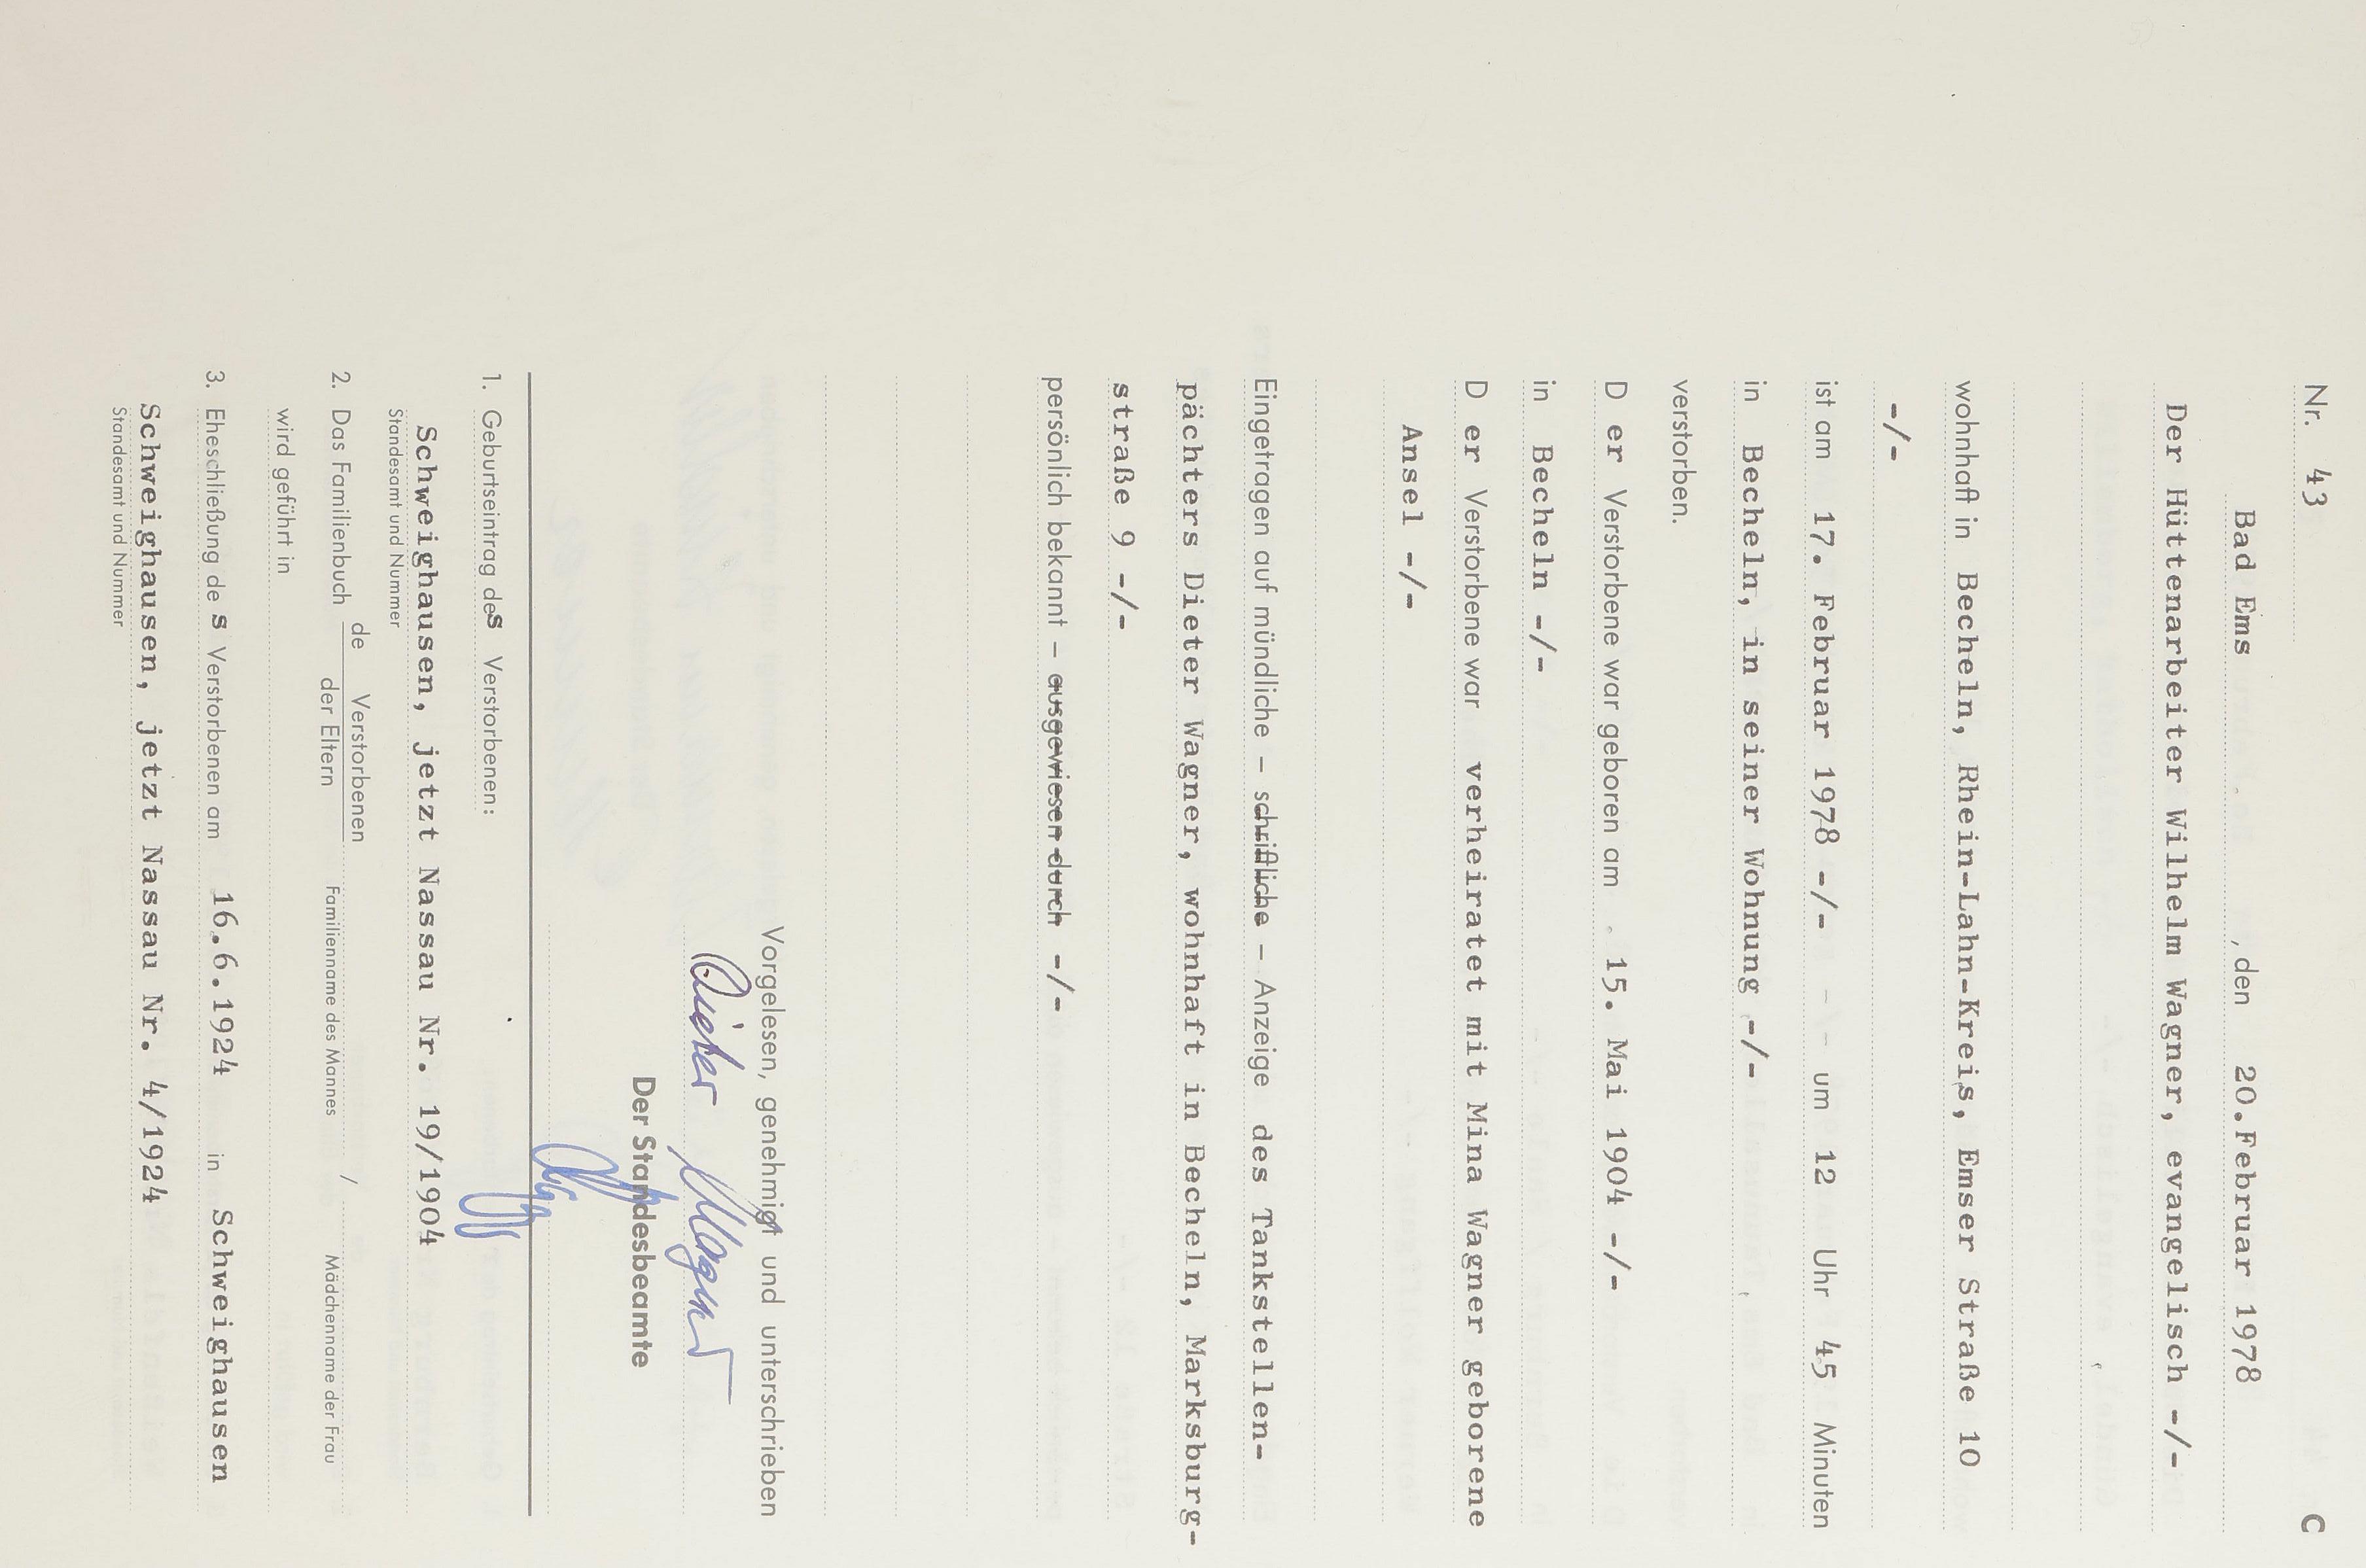 Nr. 43 C
Bad Ems , den 20.Februar 1978
Der Hüttenarbeiter Wilhelm Wagner, evangelisch -/-
wohnhaft in Becheln, Rhein-Lahn-Kreis, Emser Straße 10
-/-
ist am 17. Februar 1978 -/- um 12 Uhr 45 Minuten
in Becheln, in seiner Wohnung -/-
verstorben.
D er Verstorbene war geboren am 15. Mai 1904 -/-
in Becheln -/-
D er Verstorbene war verheiratet mit Mina Wagner geborene
Ansel -/-
Eingetragen auf mündliche – schriftliche – Anzeige des Tankstellen-
pächters Dieter Wagner, wohnhaft in Becheln, Marksburg-
straße 9 -/-
persönlich bekannt – ausgewiesen durch -/-
Vorgelesen, genehmigt und unterschrieben
Dieter Wagner
Der Standesbeamte
1. Geburtseintrag des Verstorbenen:
Schweighausen, jetzt Nassau Nr. 19/1904
Standesamt und Nummer
de Verstorbenen
2. Das Familienbuch der Eltern Familienname des Mannes / Mädchenname der Frau
wird geführt in
3. Eheschließung de s Verstorbenen am 16.6.1924 in Schweighausen
Schweighausen, jetzt Nassau Nr. 4/1924
Standesamt und Nummer